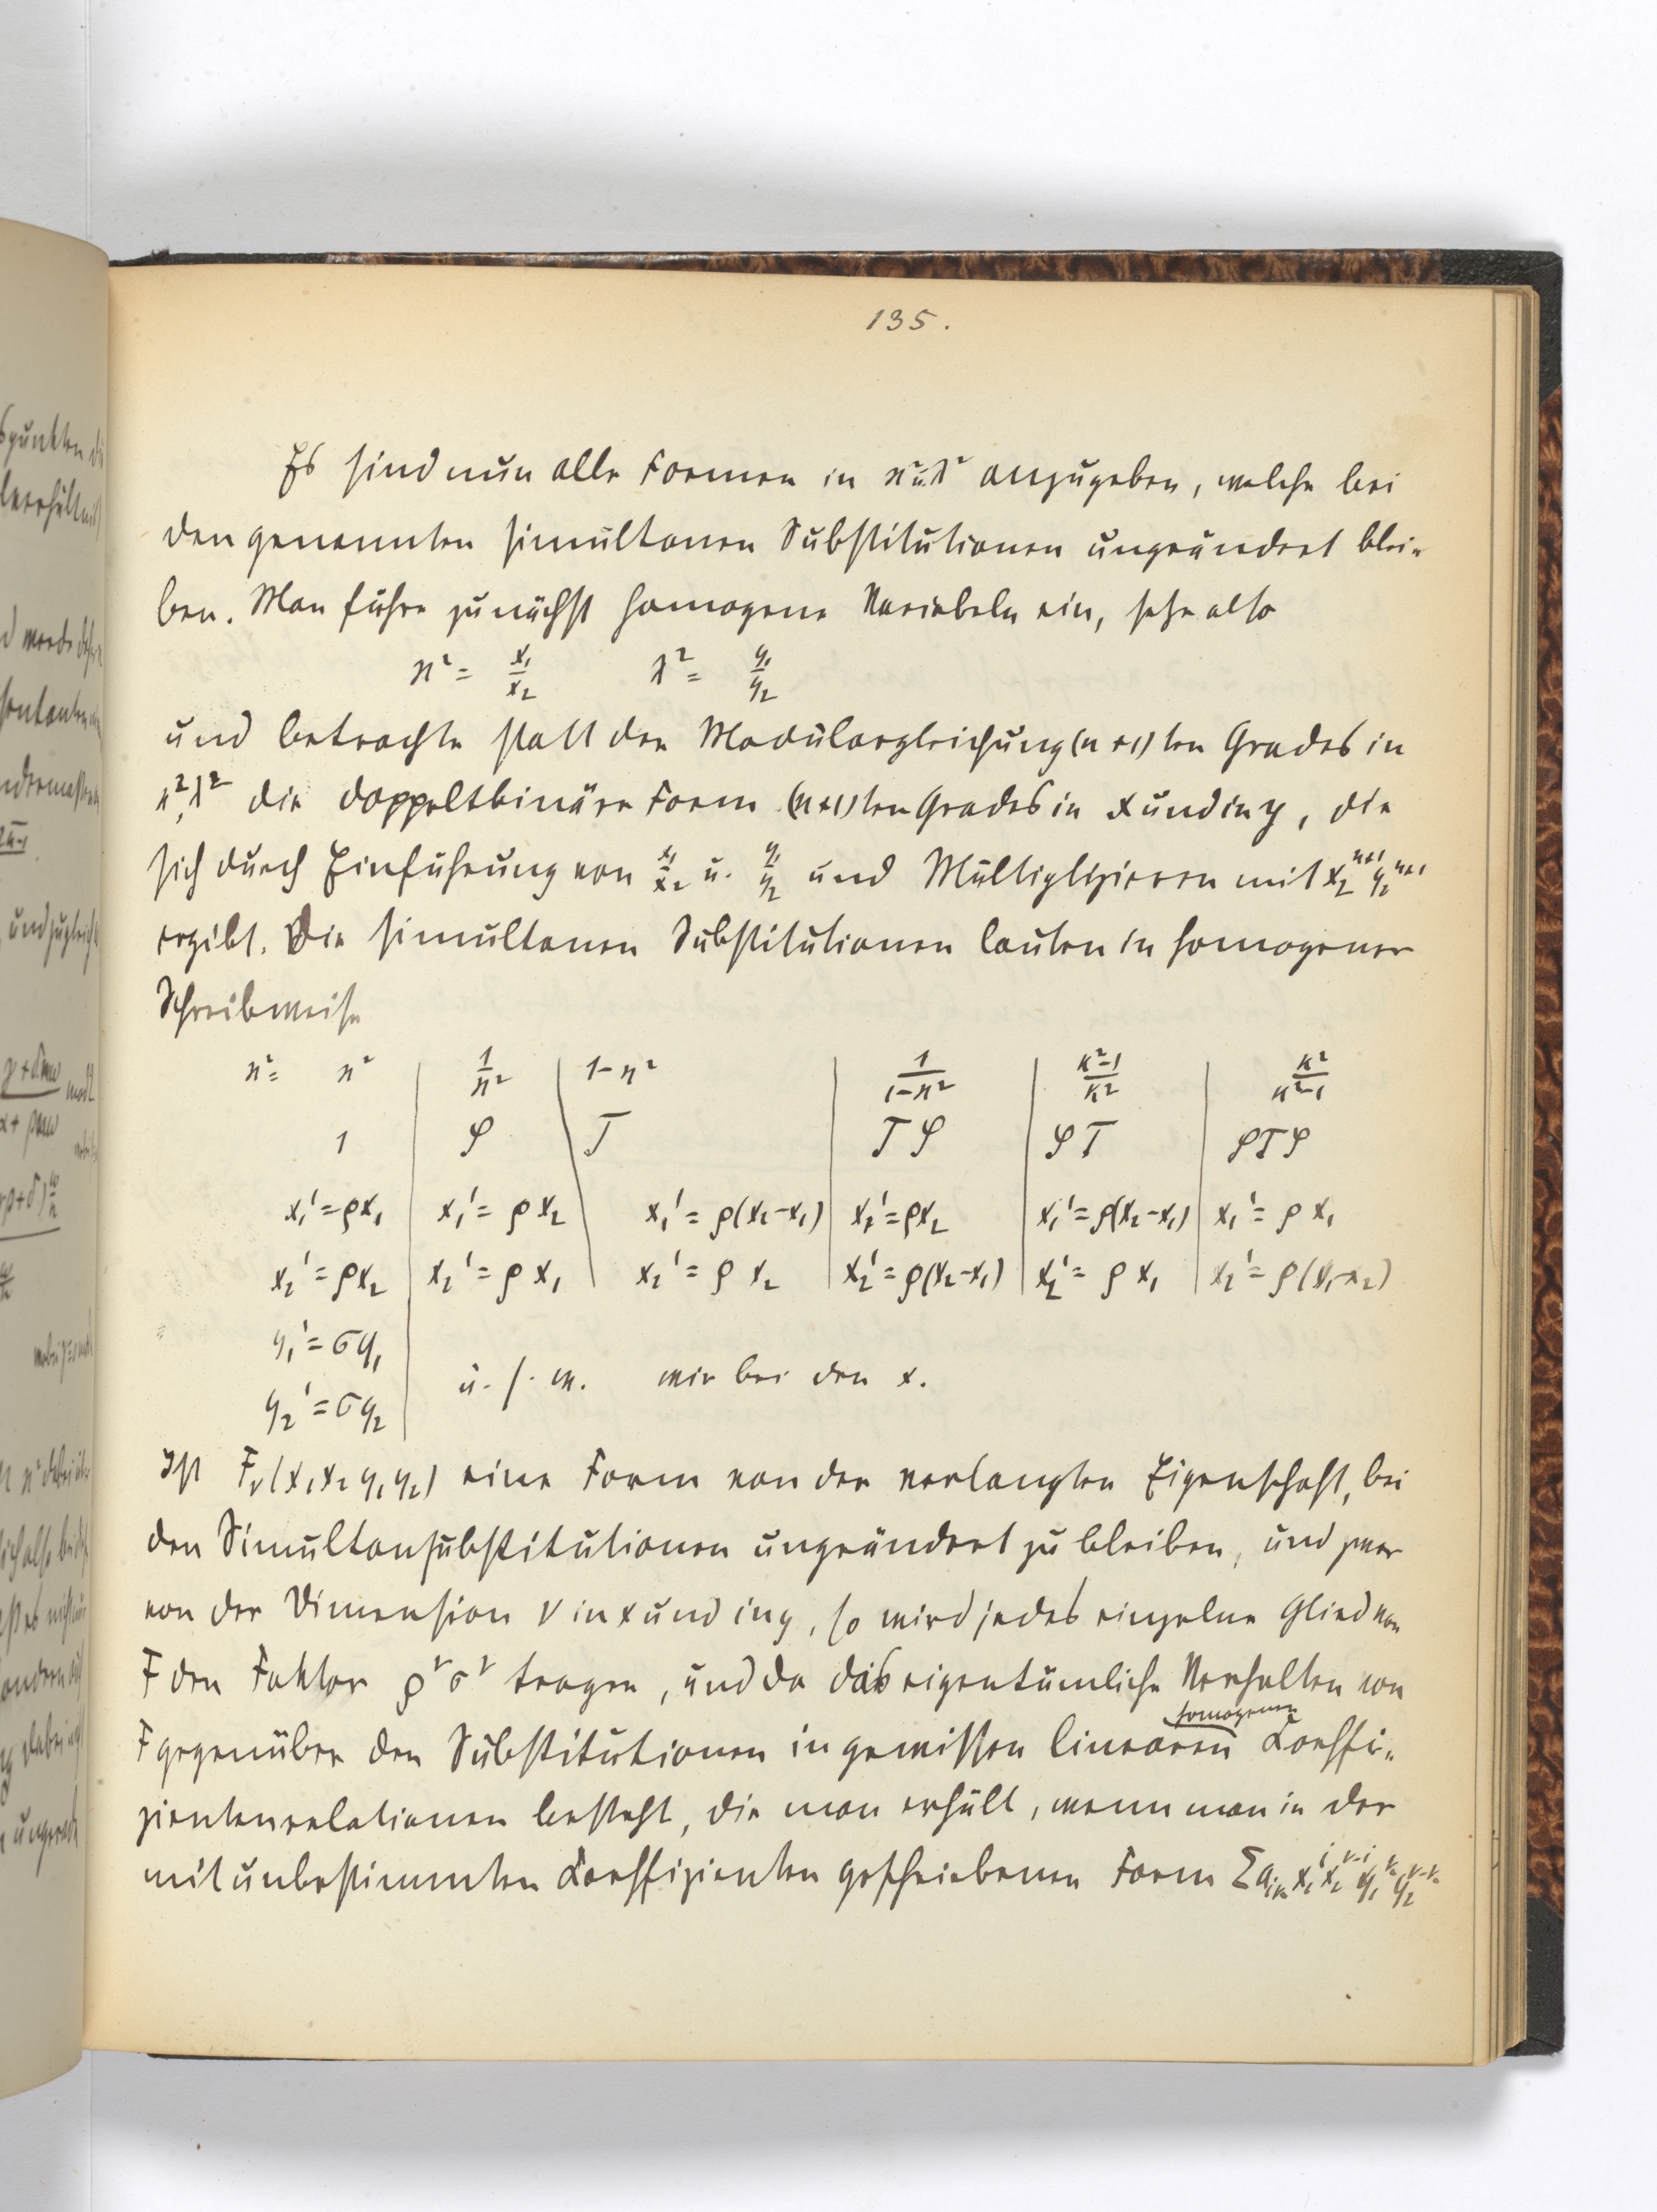 135.
Es sind nun alle Formen in ϰ² u. λ² anzugeben, welche bei
den genannten simultanen Substitutionen ungeändert blei-
ben. Man führe zunächst homogene Variabeln ein, setze also
ϰ² = x₁/x₂ λ² = y₁/y₂
und betrachte statt der Modulargleichung (n+1)ten Grades in
ϰ², λ² die doppeltbinäre Form (n+1)ten Grades in x und in y, die
sich durch Einführung von x₁/x₂ u. y₁/y₂ und Multiplizieren mit x₂ⁿ⁺¹ y₂ⁿ⁺¹
ergibt. Die simultanen Substitutionen lauten in homogener
Schreibweise
ϰ² = ϰ² | 1/ϰ² | 1-ϰ² | 1/(1-ϰ²) | (ϰ²-1)/ϰ² | ϰ²/(ϰ²-1)
1 | φ | T | Tφ | φT | φTφ
x₁' = ρx₁ | x₁' = ρx₂ | x₁' = ρ(x₂-x₁) | x₁' = ρx₂ | x₁' = ρ(x₂-x₁) | x₁' = ρx₁
x₂' = ρx₂ | x₂' = ρx₁ | x₂' = ρx₂ | x₂' = ρ(x₂-x₁) | x₂' = ρx₁ | x₂' = ρ(x₁-x₂)
y₁' = σy₁
u. s. w. wie bei den x.
y₂' = σy₂
Ist Fᵥ(x₁x₂y₁y₂) eine Form von der verlangten Eigenschaft, bei
den Simultansubstitutionen ungeändert zu bleiben, und zwar
von der Dimension ν in x und in y, so wird jedes einzelne Glied von
F den Faktor ρ^ν σ^ν tragen, und da das eigentümliche Verhalten von
homogenen
F gegenüber den Substitutionen in gewissen linearen Coeffi-
zientenrelationen besteht, die man erhält, wenn man in der
mit unbestimmten Coeffizienten geschriebenen Form Σ a_{ik} x₁^i x₂^{ν-i} y₁^k y₂^{ν-k}